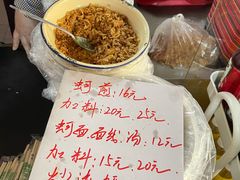 蚵煎:16元
加料:20元 25元
蚵面.面线.汤:12元
加料:15元 20元